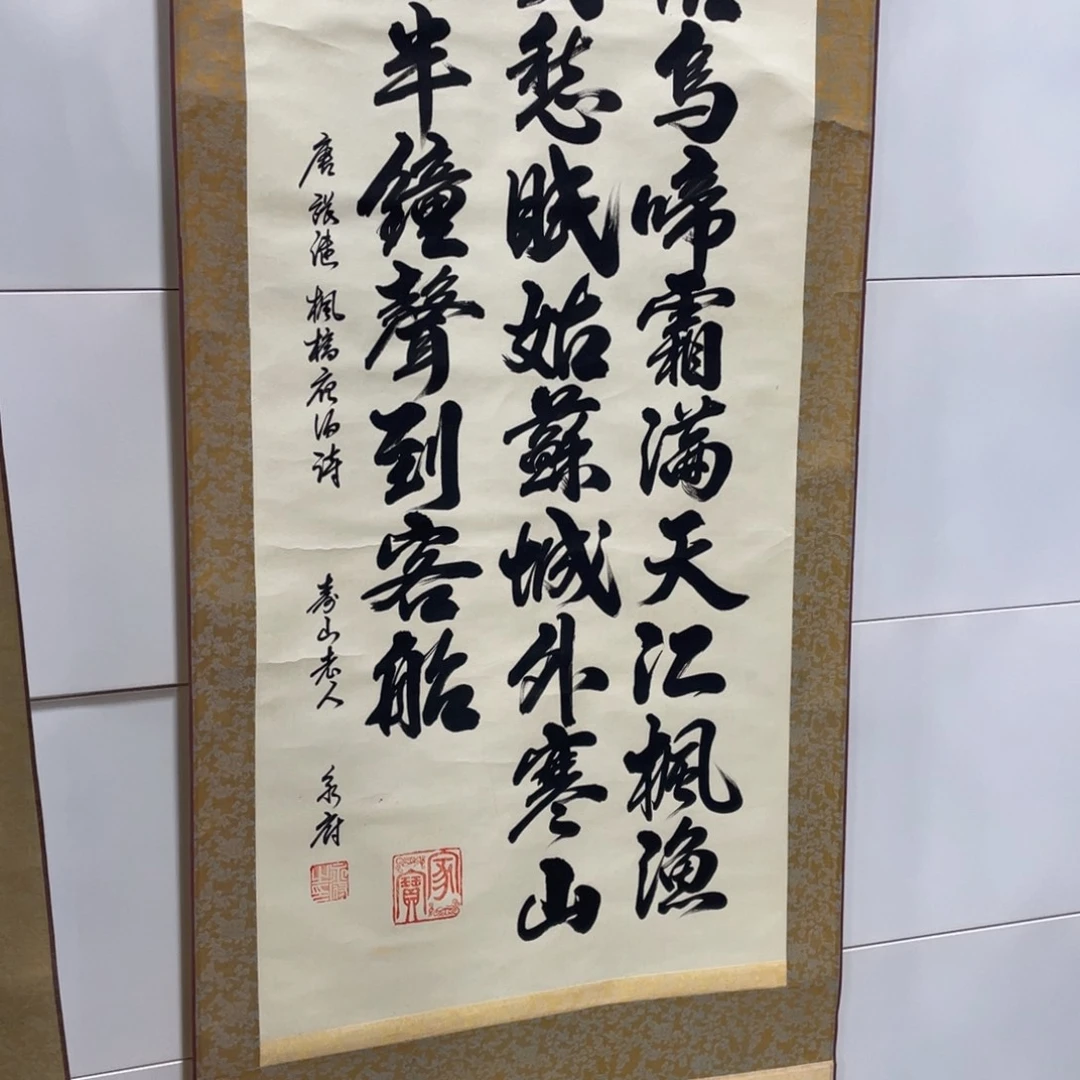 烏啼霜滿天江楓漁
愁眠姑蘇城外寒山
半鐘聲到客船
唐 張継 楓橋夜泊詩 寿山老人
家寶